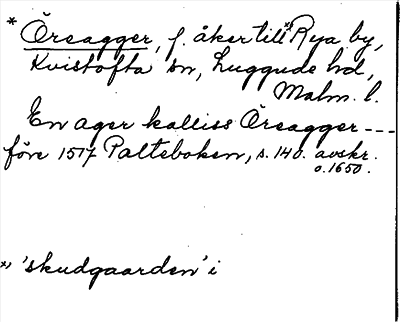 * Öreagger, f. åker till *Rya by,
Kvistofta sn, Luggude hd,
Malm. l.
En ager kalliss Öreagger ---
före 1517 Palteboken, s. 140. avskr.
o. 1650.
*) 'skudgaarden' i